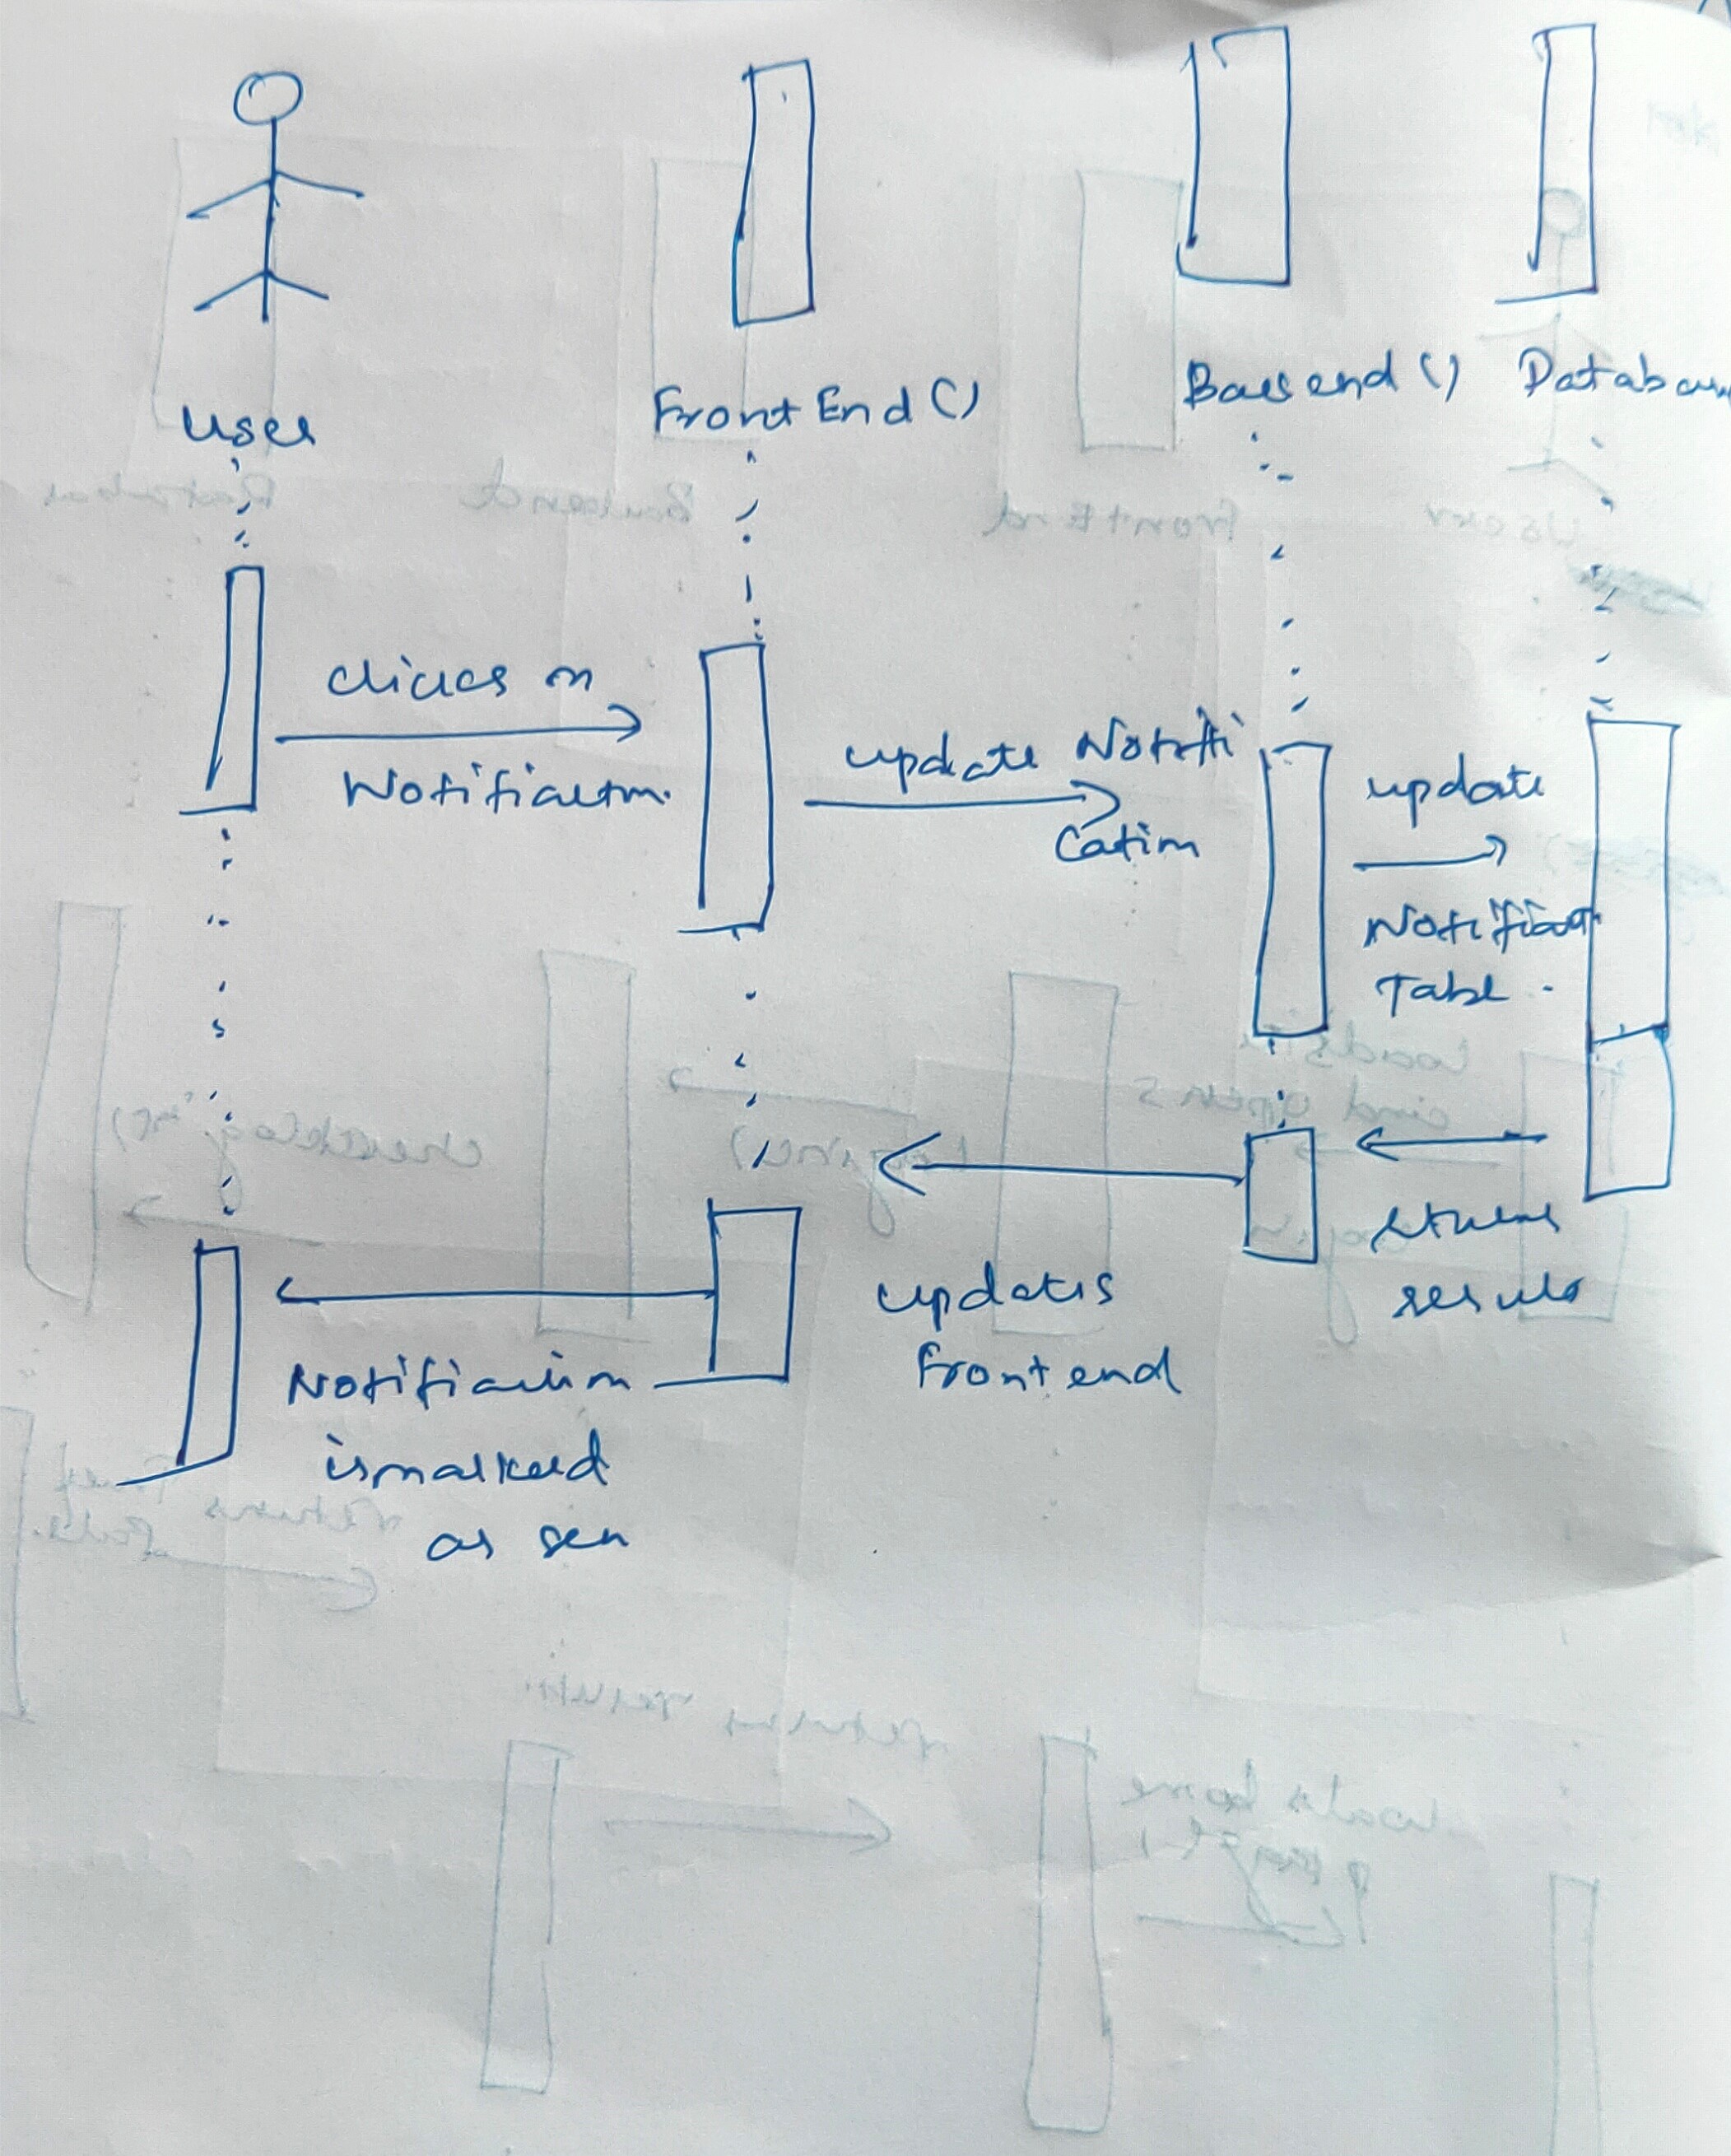 User
FrontEnd ()
Backend ()
Databas
clicks on
Notification.
update Notifi
cation
update
Notificat
Table.
returns
results
updates
Frontend
Notification
is marked
as seen